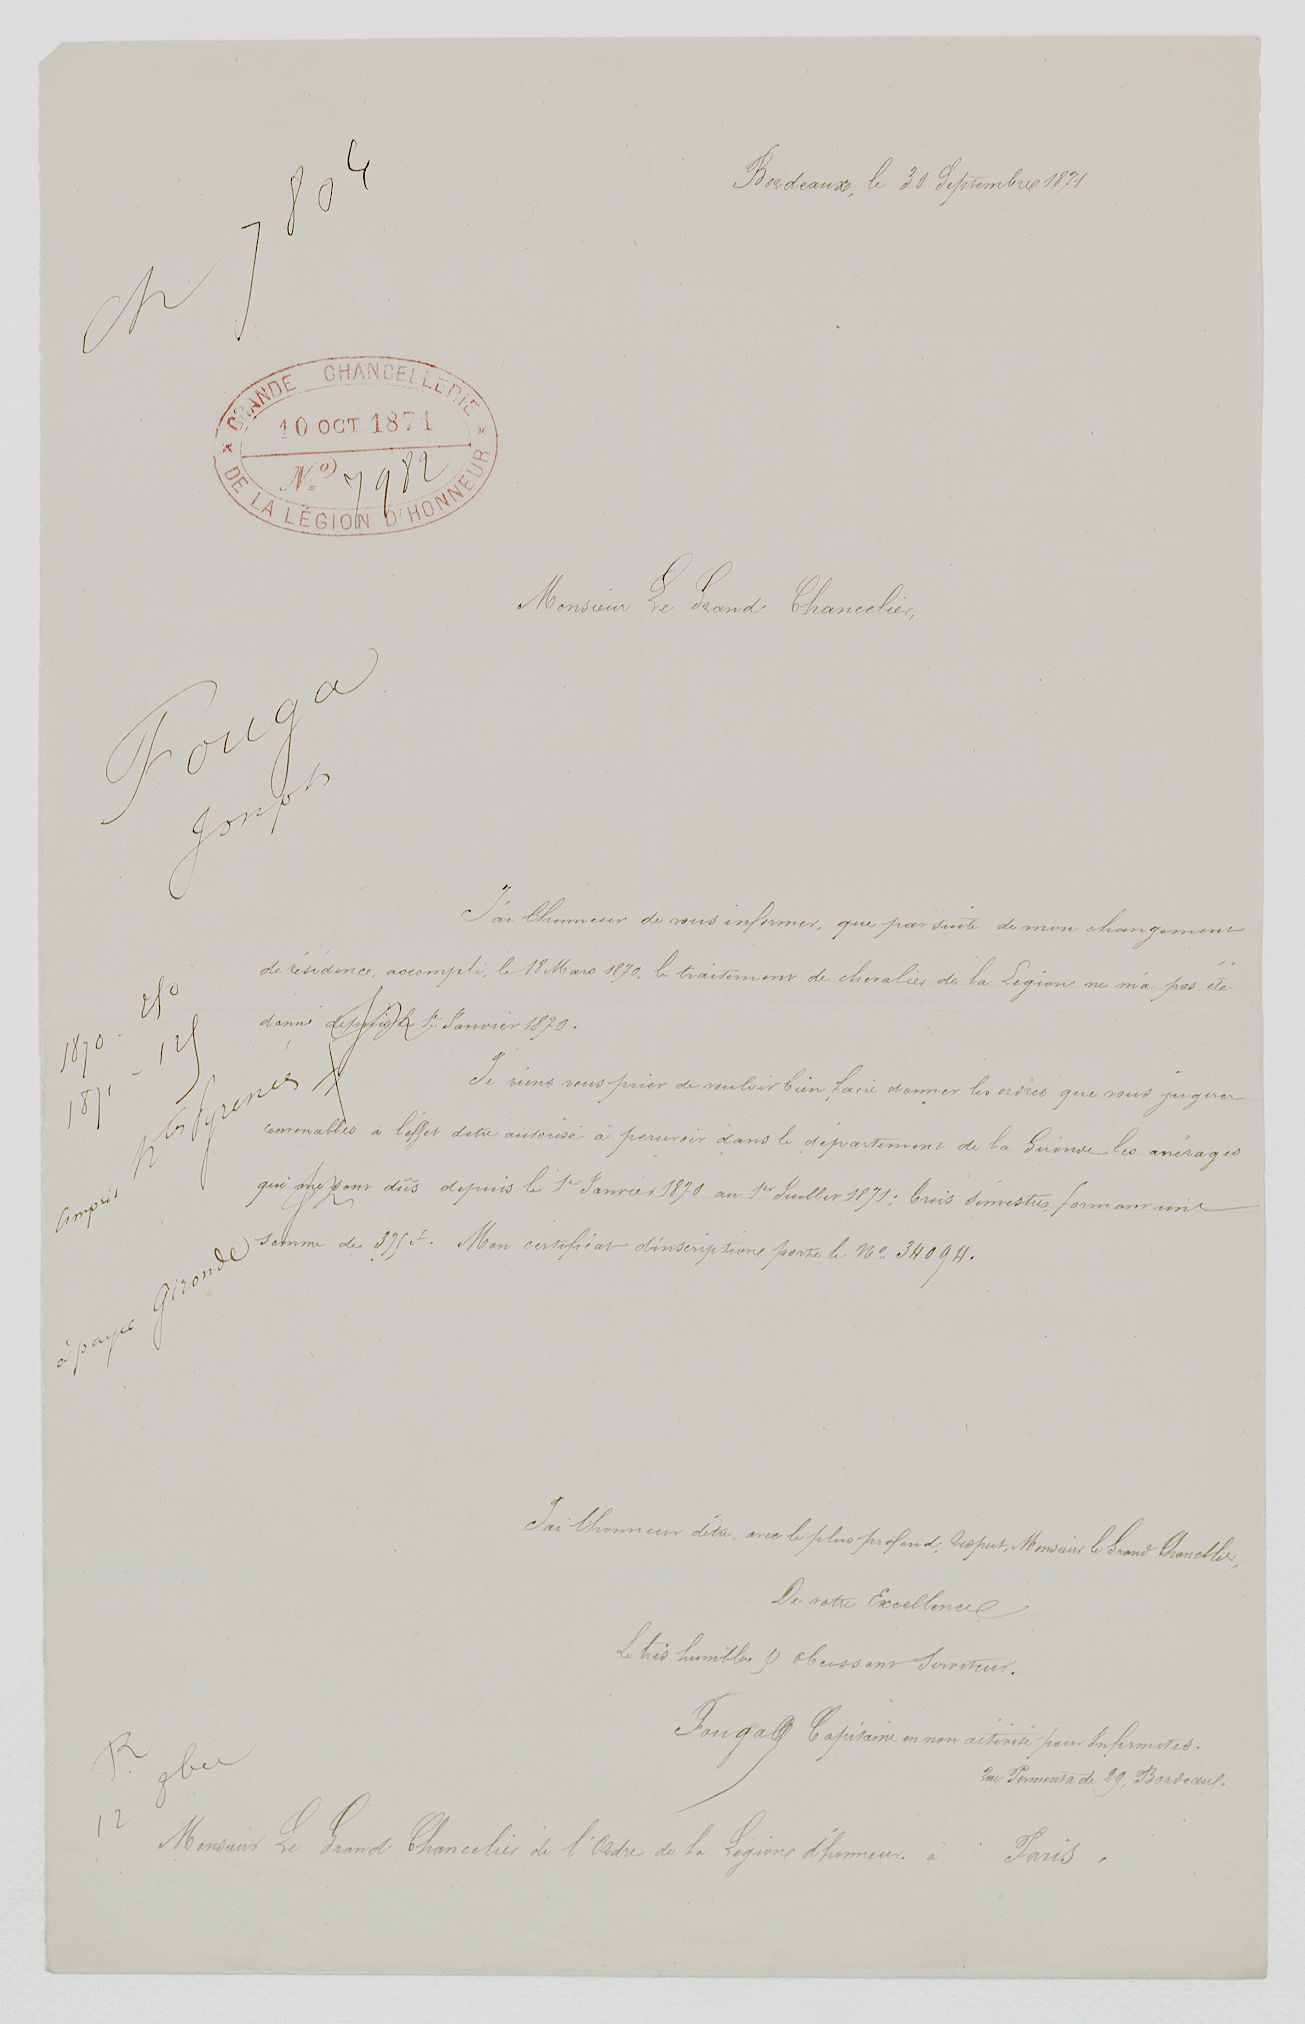 Bordeaux, le 30 Septembre 1871
Ch 7804
GRANDE CHANCELLERIE
10 OCT 1871
No 7982
DE LA LÉGION D'HONNEUR
Monsieur Le Grand Chancelier,
Fouga
Joseph
J'ai l'honneur de vous informer, que par suite de mon changement
de résidence, accompli, le 18 Mars 1870, le traitement de chevalier de la Légion ne m'a pas été
donné depuis le 1er Janvier 1870.
1870 - 250
1871 - 125
Je viens vous prier de vouloir bien faire donner les ordres que vous jugerez
convenables à l'effet d'être autorisé à percevoir dans le département de la Gironde les arrérages
qui me sont dûs depuis le 1er Janvier 1870 au 1er Juillet 1871; trois semestres, formant une
somme de 375 f. Mon certificat d'inscriptions porte le No 34094.
compris htes Pyrénées
à payer Gironde
J'ai l'honneur d'être, avec le plus profond, respect, Monsieur le Grand Chancellier,
De votre Excellence
Le très humble & obeissant serviteur.
Fouga Capitaine en non activité pour Infirmités.
29, Bordeaux.
R
12 9bre
Monsieur Le Grand Chancelier de l'Ordre de la Légion d'honneur. à Paris.